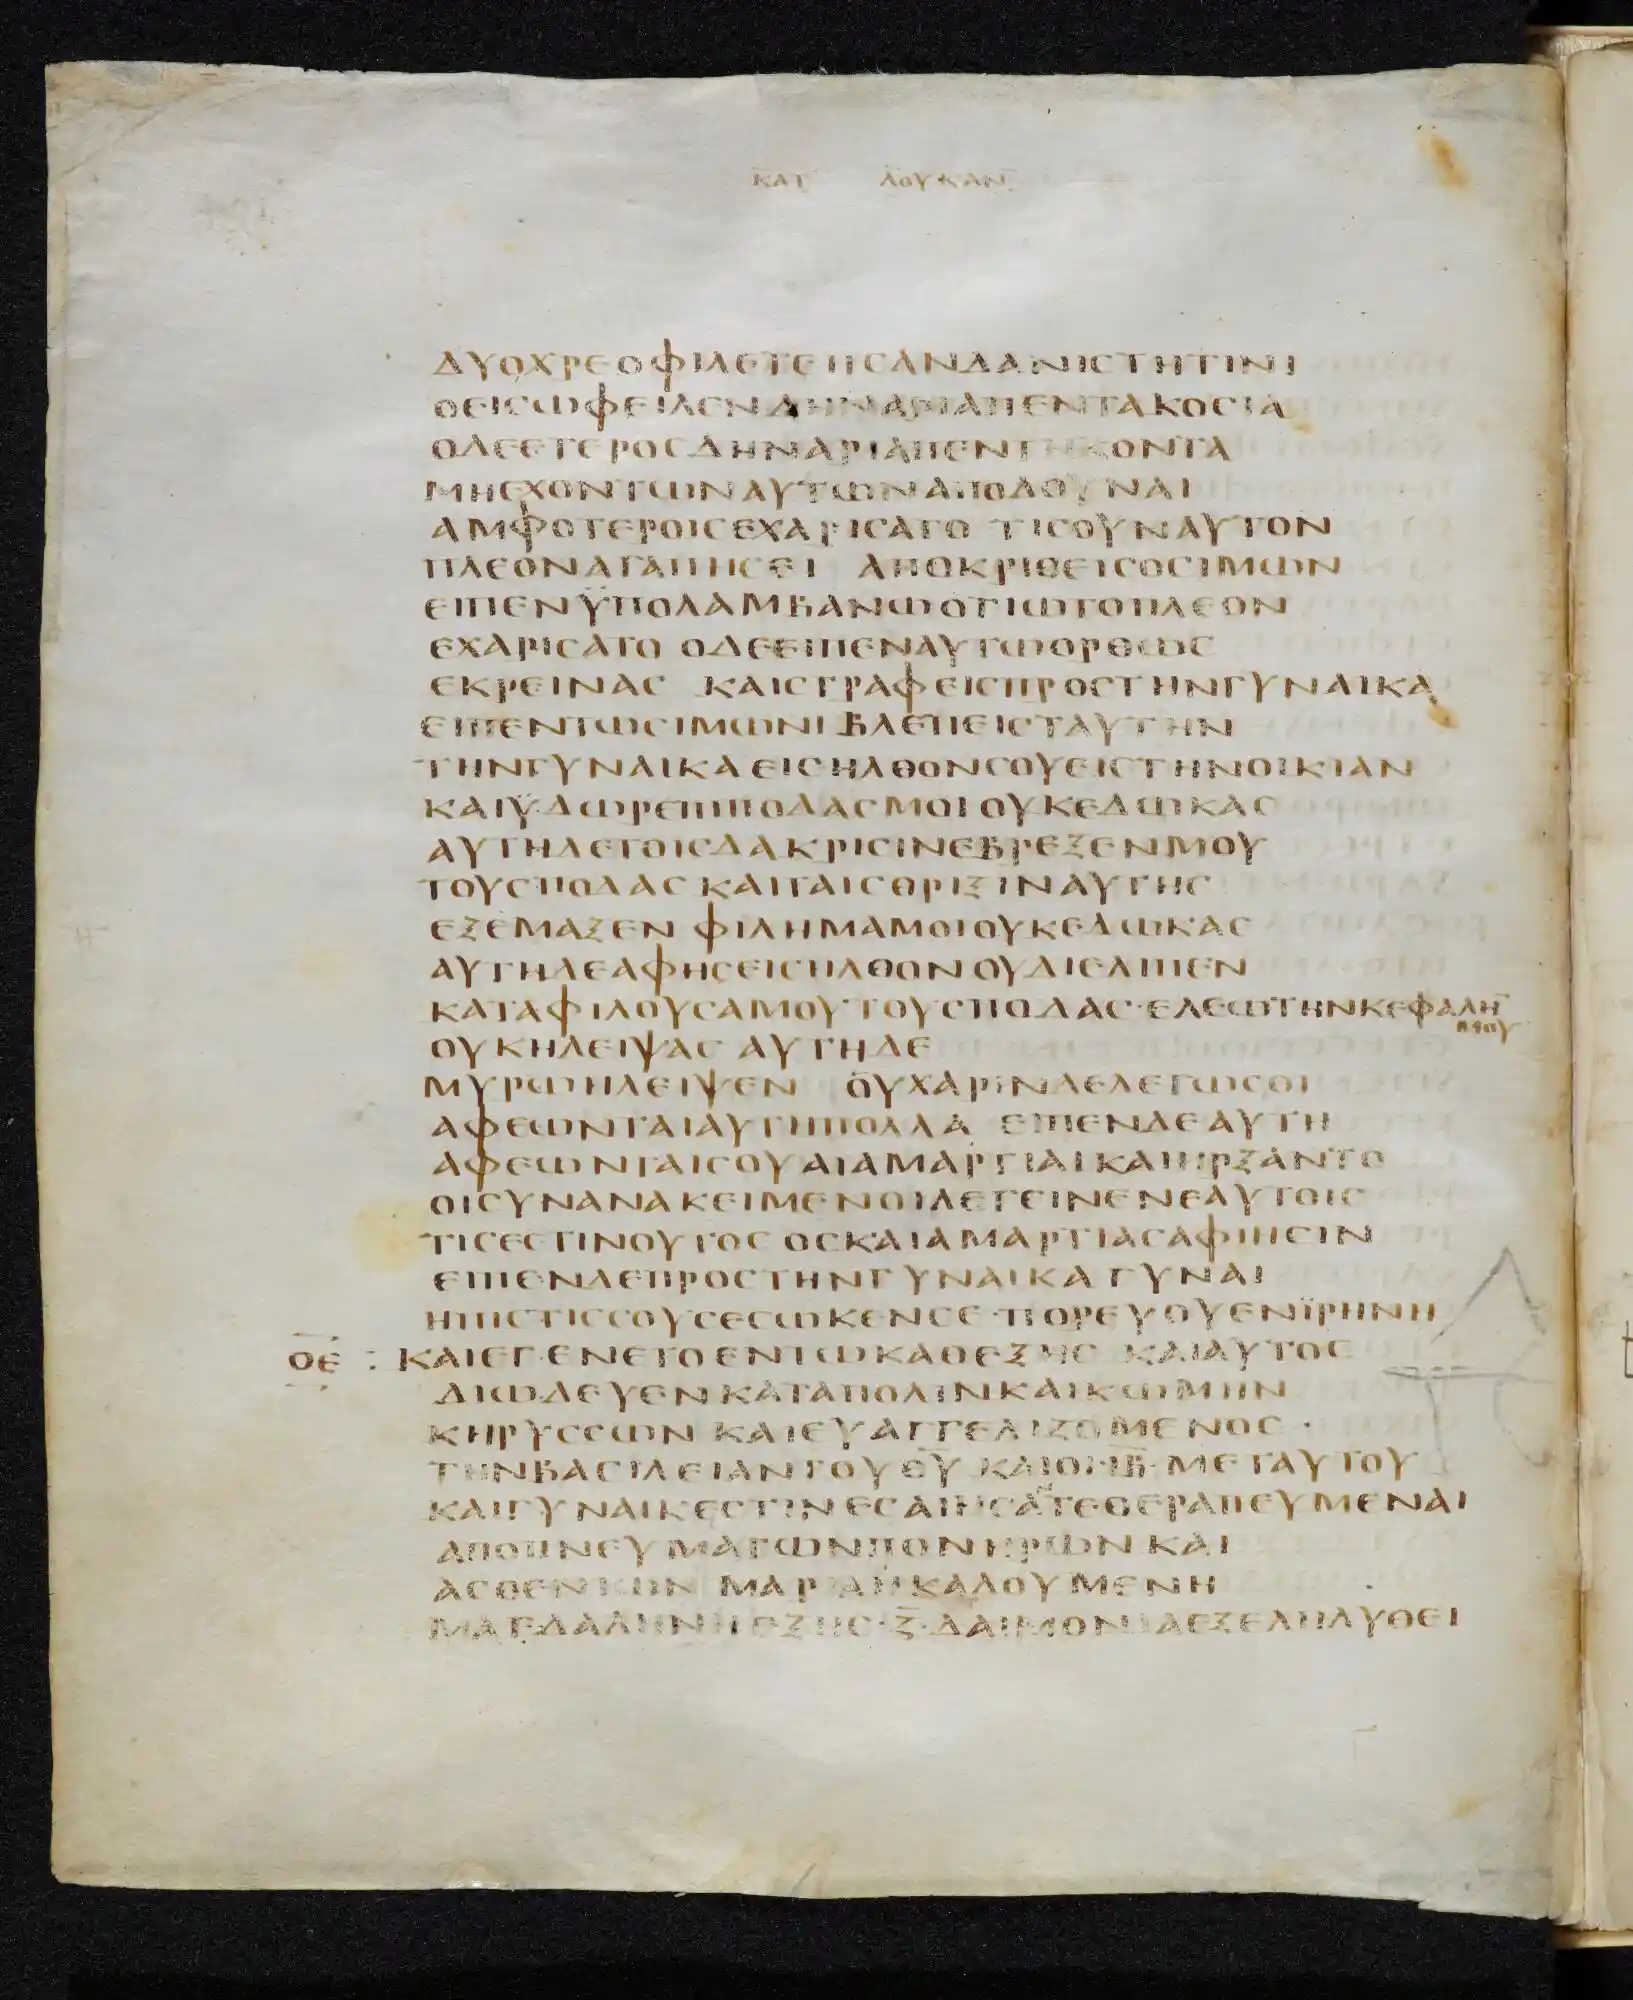 ΚΑΤ ΛΟΥΚΑΝ
ΔΥΟΧΡΕΟΦΙΛΕΤΕΗСΑΝΔΑΝΙСΤΗΤΙΝΙ
ΟΕΙСΩΦΕΙΛΕΝΔΗΝΑΡΙΑΠΕΝΤΑΚΟСΙΑ
ΟΔΕΕΤΕΡΟСΔΗΝΑΡΙΑΠΕΝΤΗΚΟΝΤΑ
ΜΗΕΧΟΝΤΩΝΑΥΤΩΝΑΠΟΔΟΥΝΑΙ
ΑΜΦΟΤΕΡΟΙСΕΧΑΡΙСΑΤΟ ΤΙСΟΥΝΑΥΤΟΝ
ΠΛΕΟΝΑΓΑΠΗСΕΙ ΑΠΟΚΡΙΘΕΙСΟСΙΜΩΝ
ΕΙΠΕΝΫΠΟΛΑΜΒΑΝΩΟΤΙΩΤΟΠΛΕΟΝ
ΕΧΑΡΙСΑΤΟ ΟΔΕΕΙΠΕΝΑΥΤΩΟΡΘΩС
ΕΚΡΕΙΝΑС ΚΑΙСΤΡΑΦΕΙСΠΡΟСΤΗΝΓΥΝΑΙΚΑ
ΕΙΠΕΝΤΩСΙΜΩΝΙ ΒΛΕΠΕΙСΤΑΥΤΗΝ
ΤΗΝΓΥΝΑΙΚΑΕΙСΗΛΘΟΝСΟΥΕΙСΤΗΝΟΙΚΙΑΝ
ΚΑΙΫΔΩΡΕΠΙΠΟΔΑСΜΟΙΟΥΚΕΔΩΚΑС
ΑΥΤΗΔΕΤΟΙСΔΑΚΡΙСΙΝΕΒΡΕΞΕΝΜΟΥ
ΤΟΥСΠΟΔΑСΚΑΙΤΑΙСΘΡΙΞΙΝΑΥΤΗС
ΕΞΕΜΑΞΕΝ ΦΙΛΗΜΑΜΟΙΟΥΚΕΔΩΚΑС
ΑΥΤΗΔΕΑΦΗСΕΙСΗΛΘΟΝΟΥΔΙΕΛΙΠΕΝ
ΚΑΤΑΦΙΛΟΥСΑΜΟΥΤΟΥСΠΟΔΑС·ΕΛΕΩΤΗΝΚΕΦΑΛΗ̅
ΜΟΥ
ΟΥΚΗΛΕΙΨΑС ΑΥΤΗΔΕ
ΜΥΡΩΗΛΕΙΨΕΝ ΟΥΧΑΡΙΝΔΕΛΕΓΩСΟΙ
ΑΦΕΩΝΤΑΙΑΥΤΗΠΟΛΛΑ ΕΙΠΕΝΔΕΑΥΤΗ
ΑΦΕΩΝΤΑΙСΟΥΑΙΑΜΑΡΤΙΑΙΚΑΙΗΡΞΑΝΤΟ
ΟΙСΥΝΑΝΑΚΕΙΜΕΝΟΙΛΕΓΕΙΝΕΝΕΑΥΤΟΙС
ΤΙСΕСΤΙΝΟΥΤΟС ΟСΚΑΙΑΜΑΡΤΙΑСΑΦΙΗСΙΝ
ΕΙΠΕΝΔΕΠΡΟСΤΗΝΓΥΝΑΙΚΑ ΓΥΝΑΙ
ΗΠΙСΤΙССΟΥСΕСΩΚΕΝСΕ·ΠΟΡΕΥΟΥΕΝΪΡΗΝΗ
ΟΕ : ΚΑΙΕΓΕΝΕΤΟΕΝΤΩΚΑΘΕΞΗС ΚΑΙΑΥΤΟС
ΔΙΩΔΕΥΕΝΚΑΤΑΠΟΛΙΝΚΑΙΚΩΜΗΝ
ΚΗΡΥССΩΝ ΚΑΙΕΥΑΓΓΕΛΙΖΟΜΕΝΟС ·
ΤΗΝΒΑСΙΛΕΙΑΝΤΟΥΘ̅Υ̅ ΚΑΙΟΙ·ΙΒ̅·ΜΕΤΑΥΤΟΥ
ΚΑΙΓΥΝΑΙΚΕСΤΙΝΕСΑΙΗСΑΝΤΕΘΕΡΑΠΕΥΜΕΝΑΙ
ΑΠΟΠΝΕΥΜΑΤΩΝΠΟΝΗΡΩΝΚΑΙ
ΑСΘΕΝΙΩΝ ΜΑΡΙΑΗΚΑΛΟΥΜΕΝΗ
ΜΑΓΔΑΛΗΝΗΕΞΗС·Ζ̅·ΔΑΙΜΟΝΙΑΕΞΕΛΗΛΥΘΕΙ